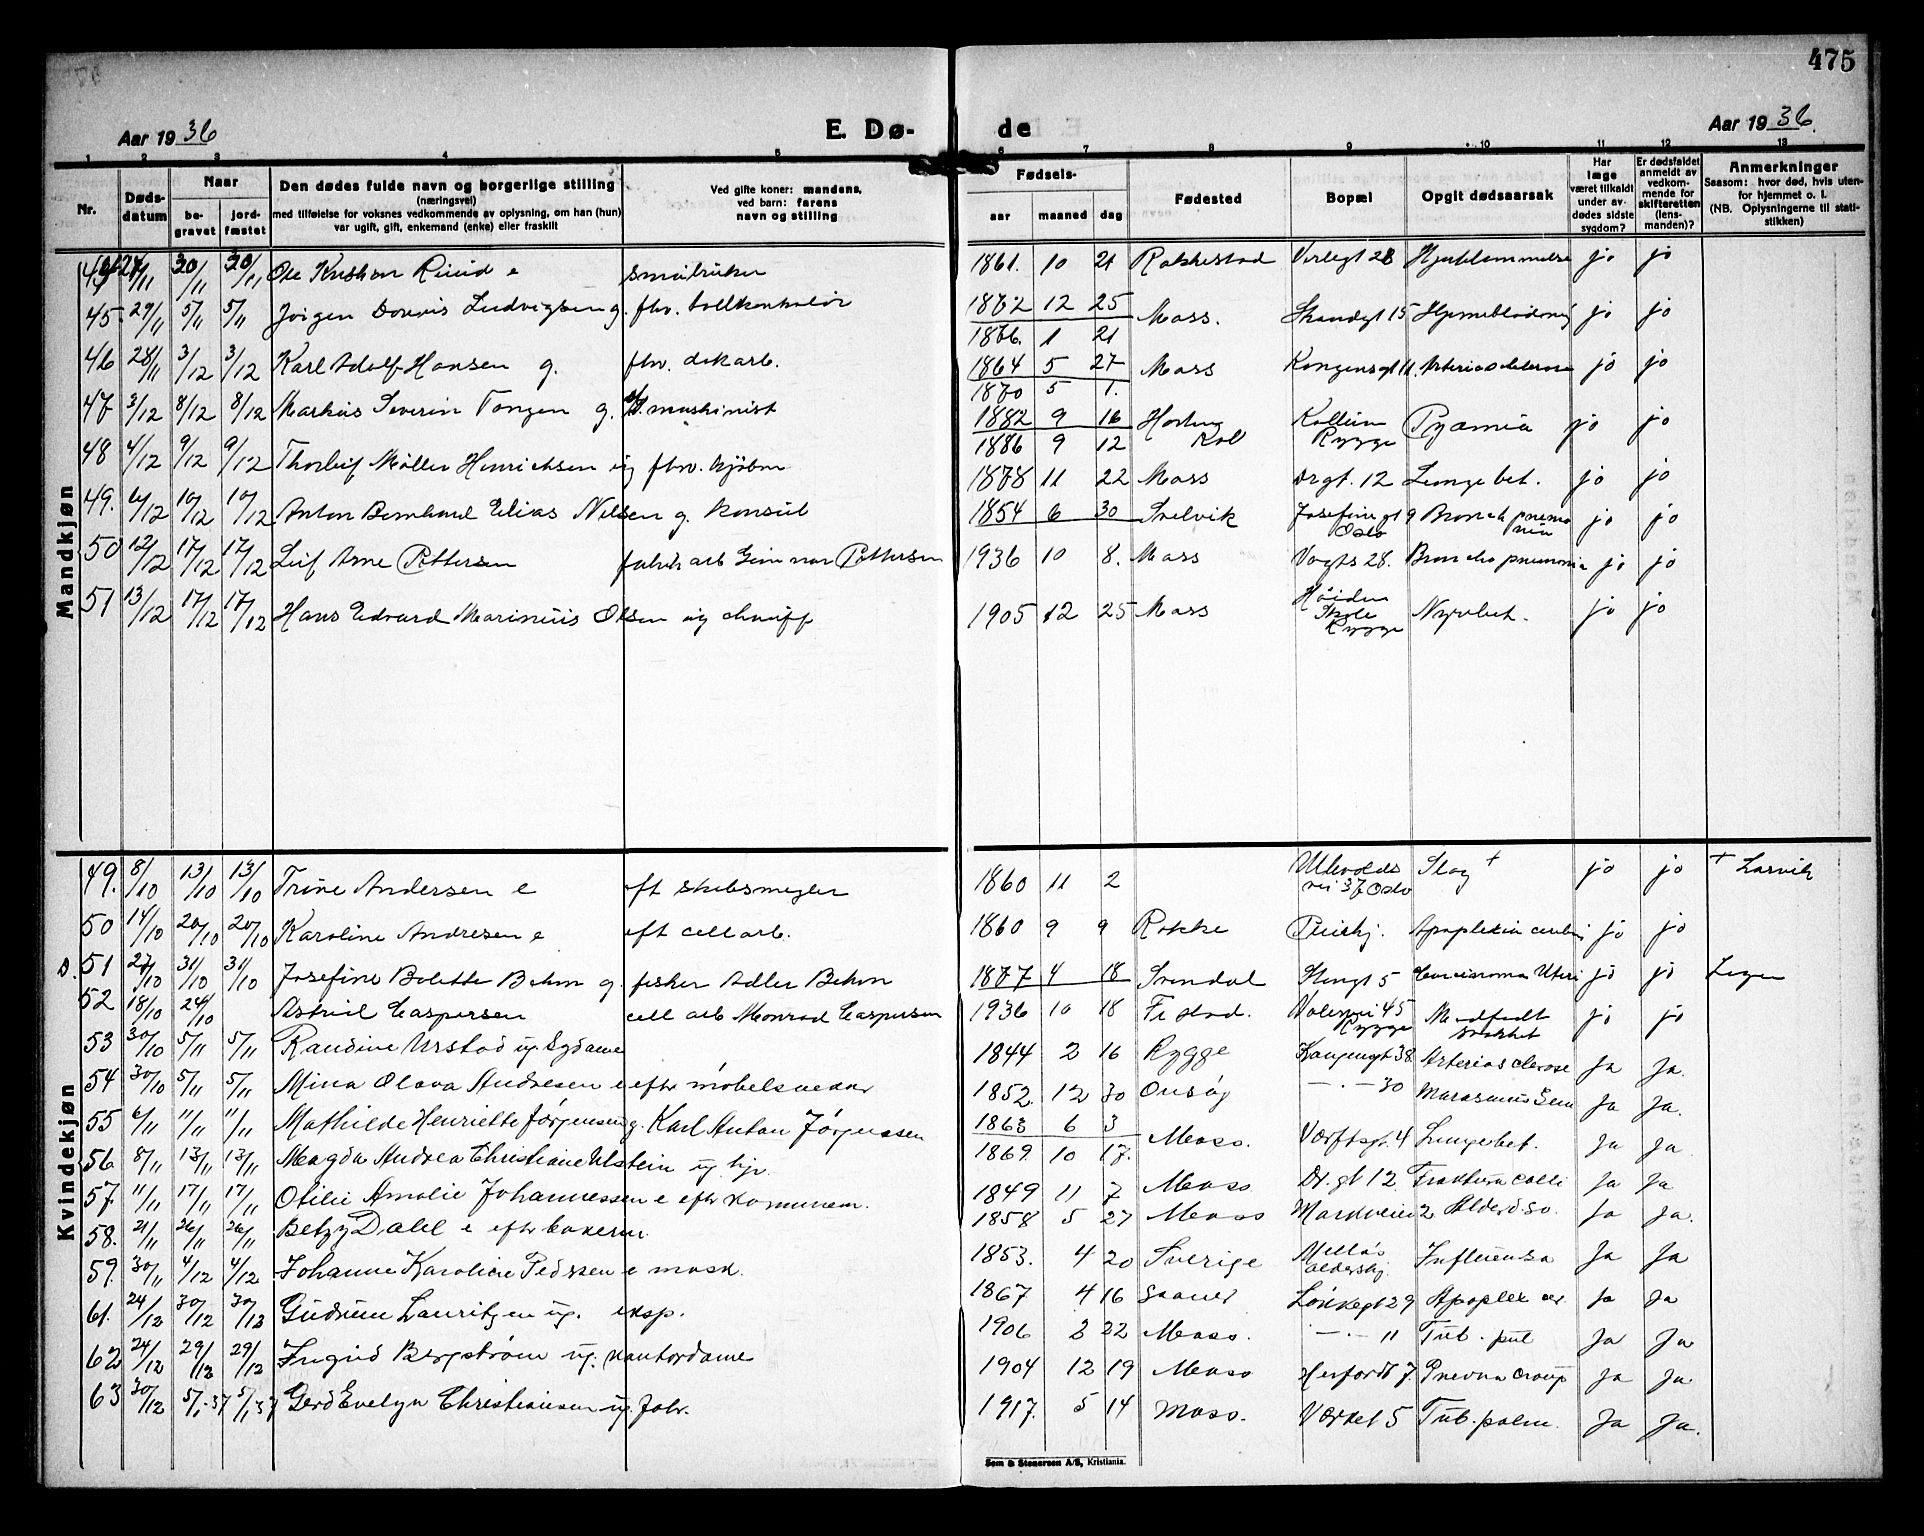 475
Aar 1936
E. Dø-
de
Aar 1936.
1 2 3 4 5 6 7 8 9 10 11 12 13
Nr. Døds-datum Naar be-gravet jord-fæstet Den dødes fulde navn og borgerlige stilling (næringsvei) med tilføielse for voksnes vedkommende av oplysning, om han (hun) var ugift, gift, enkemand (enke) eller fraskilt Ved gifte koner: mandens, ved barn: farens navn og stilling Fødsels- aar maaned dag Fødested Bopæl Opgit dødsaarsak Har læge været tilkaldt under av-dødes sidste sygdom? Er dødsfaldet anmeldt av vedkom-mende for skifteretten (lens-manden)? Anmerkninger Saasom: hvor død, hvis uten-for hjemmet o. l. (NB. Oplysningerne til stati-stikken)
Mandkjøn
27/11 20/11 Ole Kristian Ruud e småbruker 1861. 10 21 Rakkestad jo jo
45. 29/11 5/11 5/11 Jørgen Ludvigsen g. fhv. tollkontrolør 1862 12 25 Moss. Skandgt 15 Hjerneblødning jo jo
1866. 1 21
46 28/11 3/12 3/12 Karl Adolf Hansen g. fhv. dekarb. 1864 5 27 Moss Kongensgt 11. Arteriosclerose jo jo
1870 5 1.
47 3/12 8/12 8/12 Markus Severin Tangen g. maskinist 1882 9 16 Rygge Pyæmia jo jo
1886 9 12
48 4/12 9/12 9/12 Thorleif Møller Henrichsen ug fhv. kjøbm 1878 11 22 Moss Drgt. 12 Lungebet. jo jo
49. 6/12 10/12 10/12 Anton Bernhard Elias Nilsen g. konsul 1854 6 30 Svelvik Josefinegt 9 Oslo Bronch pnemonia jo jo
50 12/12 17/12 17/12 Leif Arne Pettersen fabrik arb Gunnar Pettersen 1936 10 8. Moss Vogts 28. Broncho pneumonia jo jo
51 13/12 17/12 17/12 Hans Edvard Marinius Olsen ug chauff 1905 12 25 Moss Høiden Skole Rygge Nyrebet. jo jo
Kvindekjøn
49. 8/10 13/10 13/10 Trine Andersen e eft skibsmegler 1860 11 2 Ullevolds vei 37 Oslo Slag + jo jo + Larvik
50 14/10 20/10 20/10 Karoline Andresen e eft cellarb. 1860 9 9 Rokke Apoplexia cerebri jo jo
D. 51 27/10 31/10 31/10 Josefine Bolette Behm g. fisker Adler Behm 1877 4 18 Stengt 5 Carcinoma Uteri jo jo
52 18/10 24/10 Astrid Caspersen cell arb Monrad Caspersen 1936 10 18 Fr stad. Rygge Medfødt svakhet jo jo
53 30/10 5/11 5/11 Randine Urstad ug Sydame 1844 2 16 Rygge Kongensgt 38. Arteriosclerose Ja Ja.
54 30/10 5/11 5/11 Mina Olava Andresen e eftr møbelsnekker 1852. 12 30 Onsøy — . — 30 Marasmus Sen Ja Ja.
55 6/11 11/11 11/11 Mathilde Henriette Jørgensen g. Karl Anton Jørgensen 1863 6 3 Moss. Værftsgt. 4 Lungebet. Ja Ja.
1869. 10 17.
56. 8/11 13/11 13/11 Magda Andrea Christiane Ulstein ug hjv. 1849 11 7 Moss Dr.gt 12. Fraktura colli Ja Ja
57. 11/11 17/11 17/11 Otilie Amalie Johannessen e eftr kommunem. 1858 5 27 Moss Markveien 2 Alderd.so. Ja Ja.
58. 21/11 26/11 26/11 Betzy Dahl e eftr bakerm. 1853. 4 20 Sverige Melløs aldershj. Influensa Ja Ja
59. 30/11 4/12 4/12 Johanne Karoline Pedersen e mask. 1867 4 16 Saaner Løkkegt 29 Apoplex cer. Ja Ja
61. 24/12 30/12 30/12 Gudrun Lauritzen ug. eksp. 1906 2 22 Moss. — . — 11 Tub. pul Ja Ja
62 24/12 29/12 29/12 Ingrid Bergstrøm ug. kontordame 1904 12 19 Moss Herfordt 7. Pnevm croup Ja Ja
63 30/12 5/1-37 5/1 37 Gerd Evelyn Christiansen ug. fabr. 1917. 5 14 Moss. Værket 5 Tub. polm. Ja Ja.
Sem & Stenersen A/S, Kristiania.